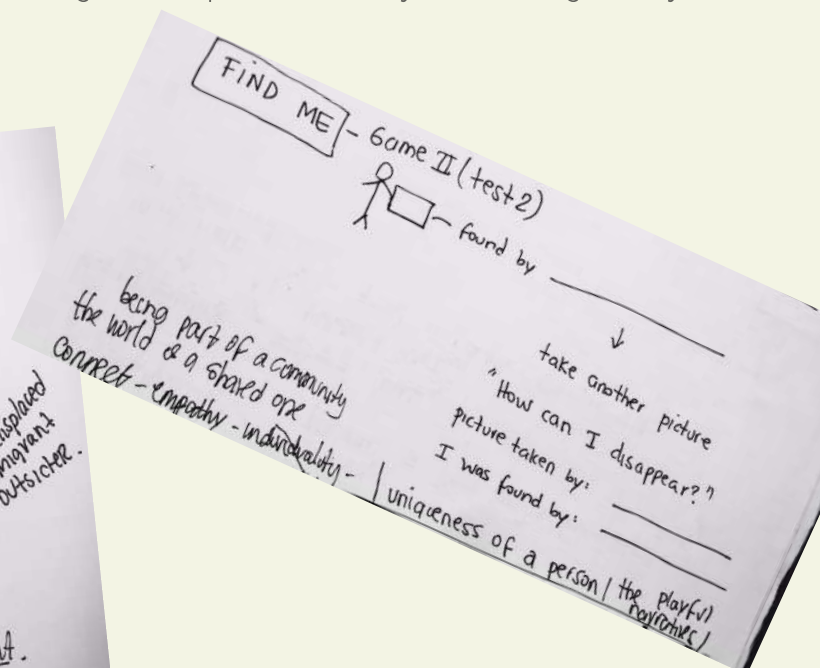 FIND ME - Game II (test 2)
found by
take another picture
"How can I disappear?"
picture taken by:
I was found by:
being part of a community
the world is a shared one
connect - empathy - individuality -
| uniqueness of a person | the playful
narratives |
displaced
migrant
outsider.